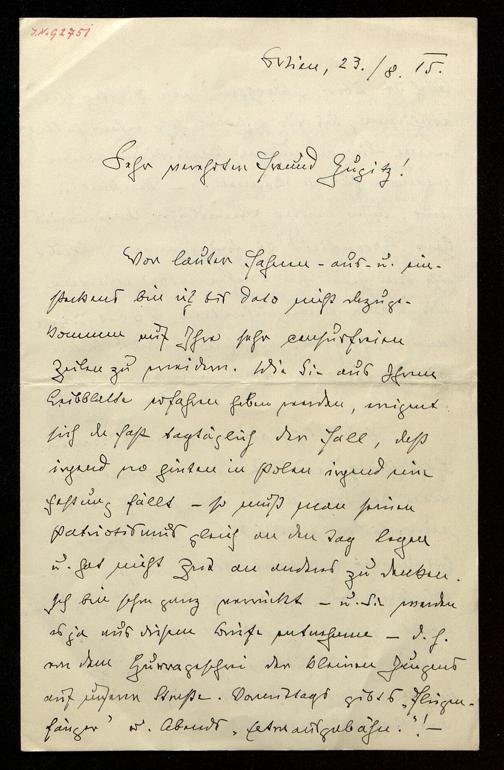 J.N. 92751
Wien, 23./8. 15.
Sehr verehrter Freund Gugitz!
Vor lauter Fahnen-aus-u. ein-
steckens bin ich bis dato nicht dazuge-
kommen auf Ihre sehr censurfreien
Zeilen zu erwidern. Wie Sie aus Ihrem
Leibblatte erfahren haben werden, ereignet
sich da fast tagtäglich der Fall, daß
irgend wo hinten in Polen irgend eine
Festung fällt – so muß man seinen
Patriotismus gleich an den Tag legen
u. hat nicht Zeit an anderes zu denken.
Ich bin schon ganz verrückt – u. Sie werden
es ja aus diesem Briefe entnehmen – d. h.
von dem Hurrageschrei der kleinen Jungens
auf unserer Straße. Vormittags gibts „Fliegen-
fänger" u. Abends „Extraausgabähn."! –